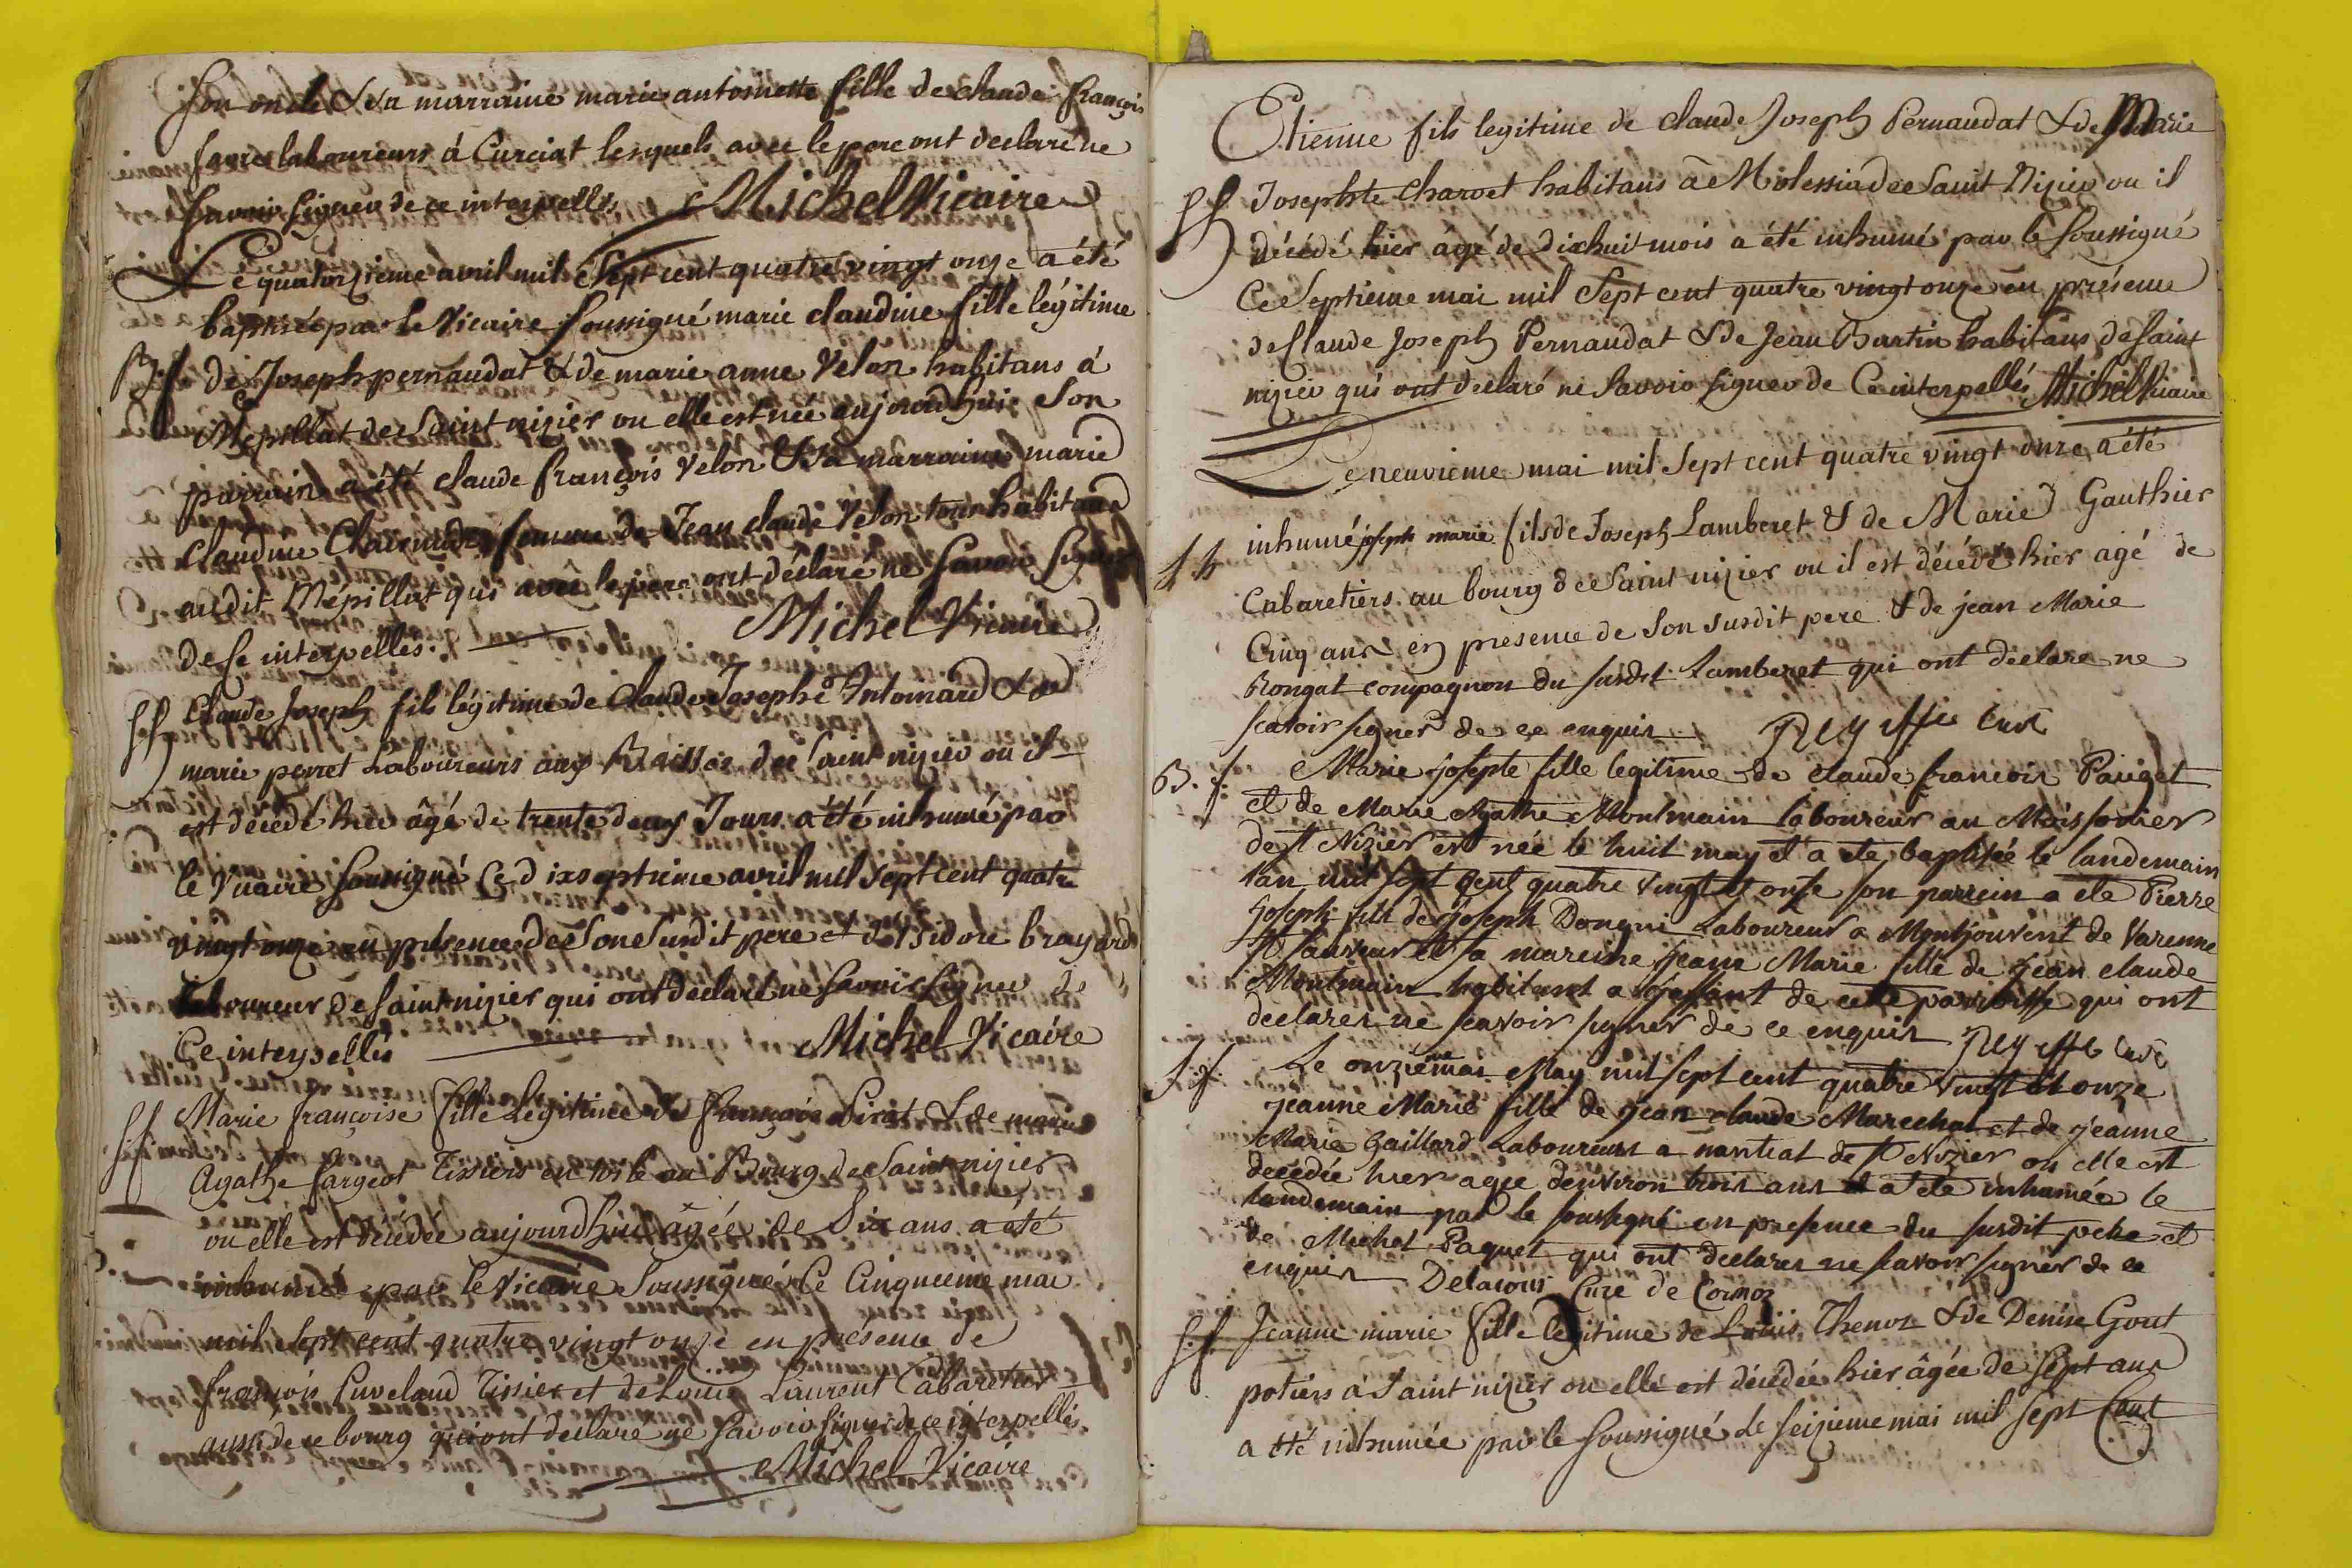 son oncle & sa marraine marie antoinette fille de claude françois
favre laboureurs à Curciat lesquels avec le pere ont declaré ne
savoir signer de ce interpellés Michel Vicaire
Le quatorzieme avril mil sept cent quatre vingt onze a été
baptisée par le Vicaire soussigné marie claudine fille légitime
B. f de Joseph pernaudat & de marie anne Velon habitans à
Mepillat de Saint nizier ou elle est née aujourdhui son
parrain a été claude françois Velon & sa marraine marie
claudine femme de Jean claude Velon tous habitans
audit Mépillat qui avec le pere ont déclaré ne savoir signer
de ce interpellés. Michel Vicaire
Sf Claude Joseph fils légitime de Claude Josephe Antoinard & de
marie perret Laboureurs aux Boissies de Saint nizier ou il
est décédé hier âgé de trente deux Jours a été inhumé par
le Vicaire soussigné Ce dixseptieme avril mil sept cent quatre
vingt onze en présence de Son Susdit pere et d'Isidore brayard
laboureur de Saint nizier qui ont declaré ne savoir signer de
Ce interpellés Michel Vicaire
Sf Marie françoise fille Légitime de françois Pirat & de marie
Agathe fargeot Tissiers en toile au Bourg de Saint nizier
ou elle est décédée aujourdhui âgée de Dix ans a été
inhumée par le Vicaire Soussigné Ce Cinquieme mai
mil sept cent quatre vingt onze en présence de
françois Puveland Tissier et de Louis Laurent Cabaretier
aussi de ce bourg qui ont declaré ne savoir signer de ce interpellés.
Michel Vicaire
Etienne fils legitime de claude Joseph Pernaudat & de Marie
Sf Josephte Charvet habitans à Molessiade Saint Nizier ou il
décédé hier âgé de dixhuit mois a été inhumé par le soussigné
Ce Septieme mai mil Sept cent quatre vingt onze en présence
de Claude Joseph Pernaudat & de Jean Bartin habitans de Saint
nizier qui ont declaré ne Savoir signer de Ce interpellés Michel Vicaire
Le neuvieme mai mil sept cent quatre vingt onze a été
inhumé joseph marie fils de Joseph Lamberet & de Marie Gauthier
Cabaretiers au bourg de Saint nizier ou il est décédé hier agé de
Cinq ans en presence de Son susdit pere & de jean Marie
Rongat compagnon du susdit Lamberet qui ont déclaré ne
scavoir signer de ce enquis Reyssie curé
B. f. Marie josepte fille legitime de claude francois Pauget
et de Marie Agathe Montmain laboureur au Moissonier
de st Nizier est née le huit may et a ete baptisée le landemain
lan mil sept cent quatre vingt et onse son parrein a ete Pierre
joseph fils de joseph Donguin Laboureur a Montjouvent de Varenne
st Sauveur et sa mareine jeane Marie fille de jean claude
Montmain habitant a de cette parroisse qui ont
declarer ne scavoir signer de ce enquis Reyssie curé
S. f. Le onzieme May mil sept cent quatre vingt et onze
jeanne Marie fille de jean claude Marechat et de jeanne
Marie Gaillard Laboureurs a nantiat de st Nizier ou elle est
decedée hier agee denviron trois ans et a ete inhumée le
landemain par le soussigné en presence du susdit pere et
de Michel Paquet qui ont declarer ne scavoir signer de ce
enquis Delacour Curé de Cormoz
S. f. Jeanne marie fille légitime de Louis Thenoz & de Denise Gout
potiers à Saint nizier ou elle est décédée hier âgée de sept ans
a été inhumée par le soussigné Le seizieme mai mil sept Cent